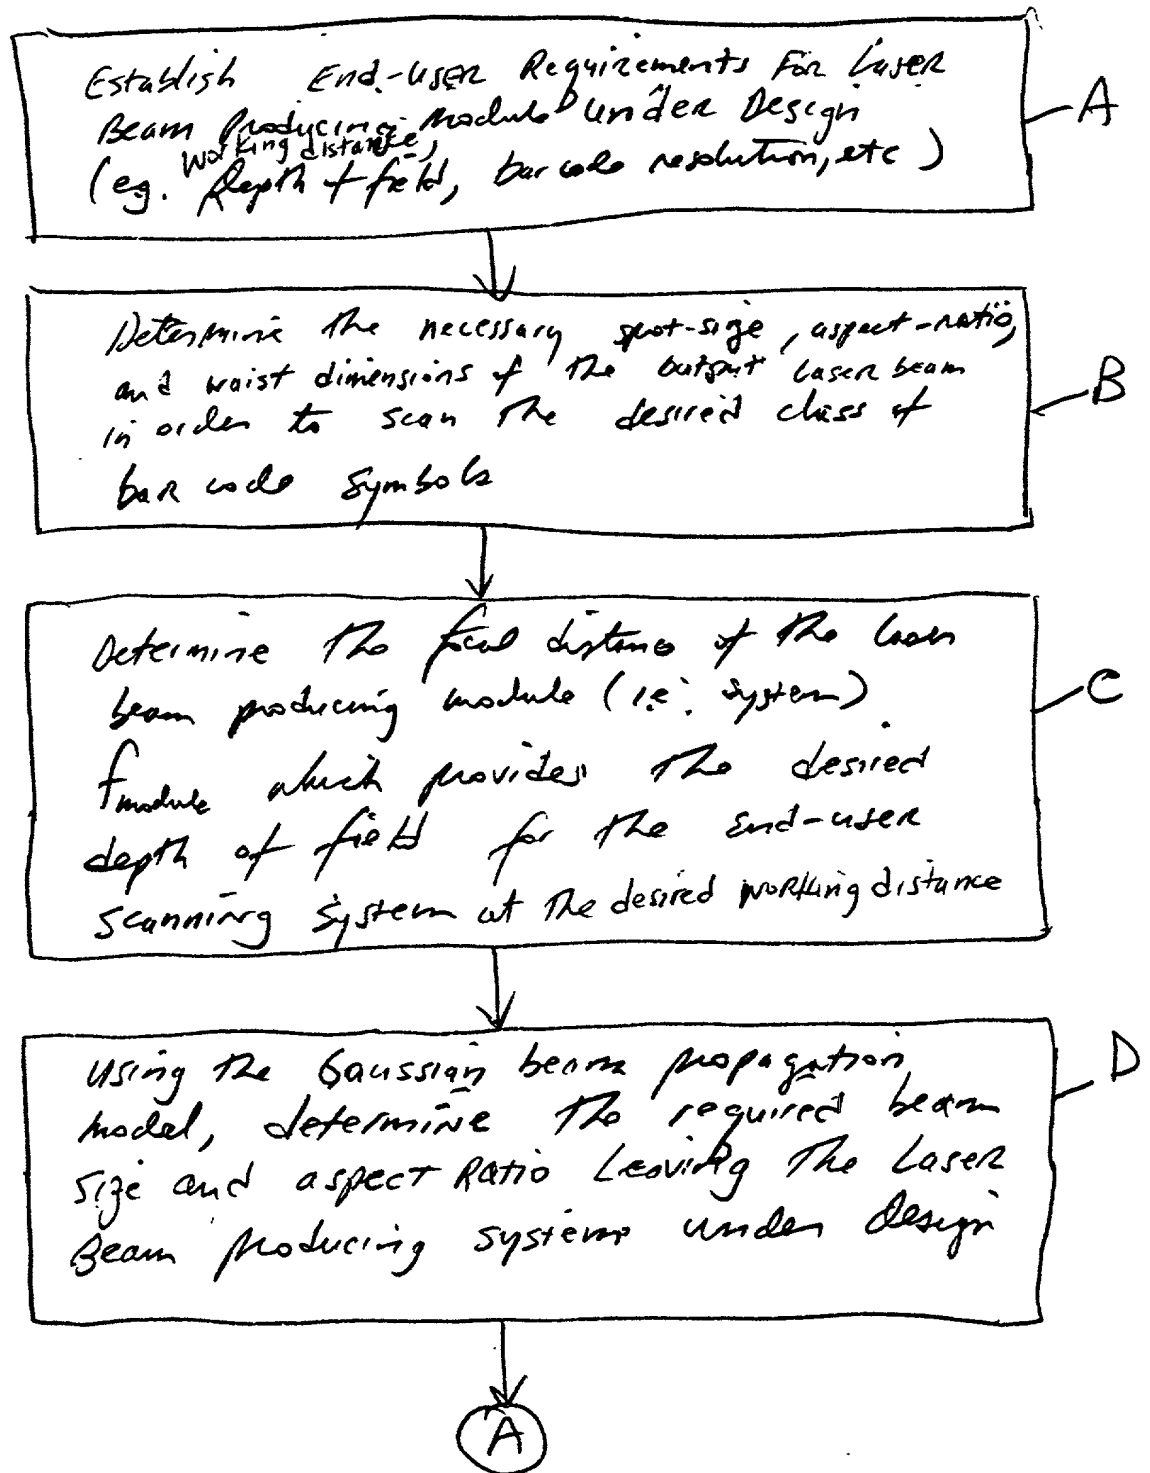 Establish End-user Requirements For Laser
Beam Producing Module Under Design
working distance,
(eg. depth of field, bar code resolution, etc)
A
Determine the necessary spot-size, aspect-ratio,
and waist dimensions of the output laser beam
in order to scan the desired class of
bar code symbols
B
Determine the focal distance of the laser
beam producing module (i.e. system)
fmodule which provides the desired
depth of field for the End-user
scanning system at the desired working distance
C
Using the Gaussian beam propagation
model, determine the required beam
size and aspect Ratio Leaving The Laser
Beam producing system under design
D
A